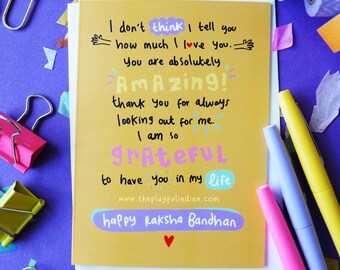 I don't think I tell you
how much I love you.
you are absolutely
AMAZING!
thank you for always
looking out for me.
I am so
grateful
to have you in my life
www.theplayfulindian.com
happy Raksha Bandhan